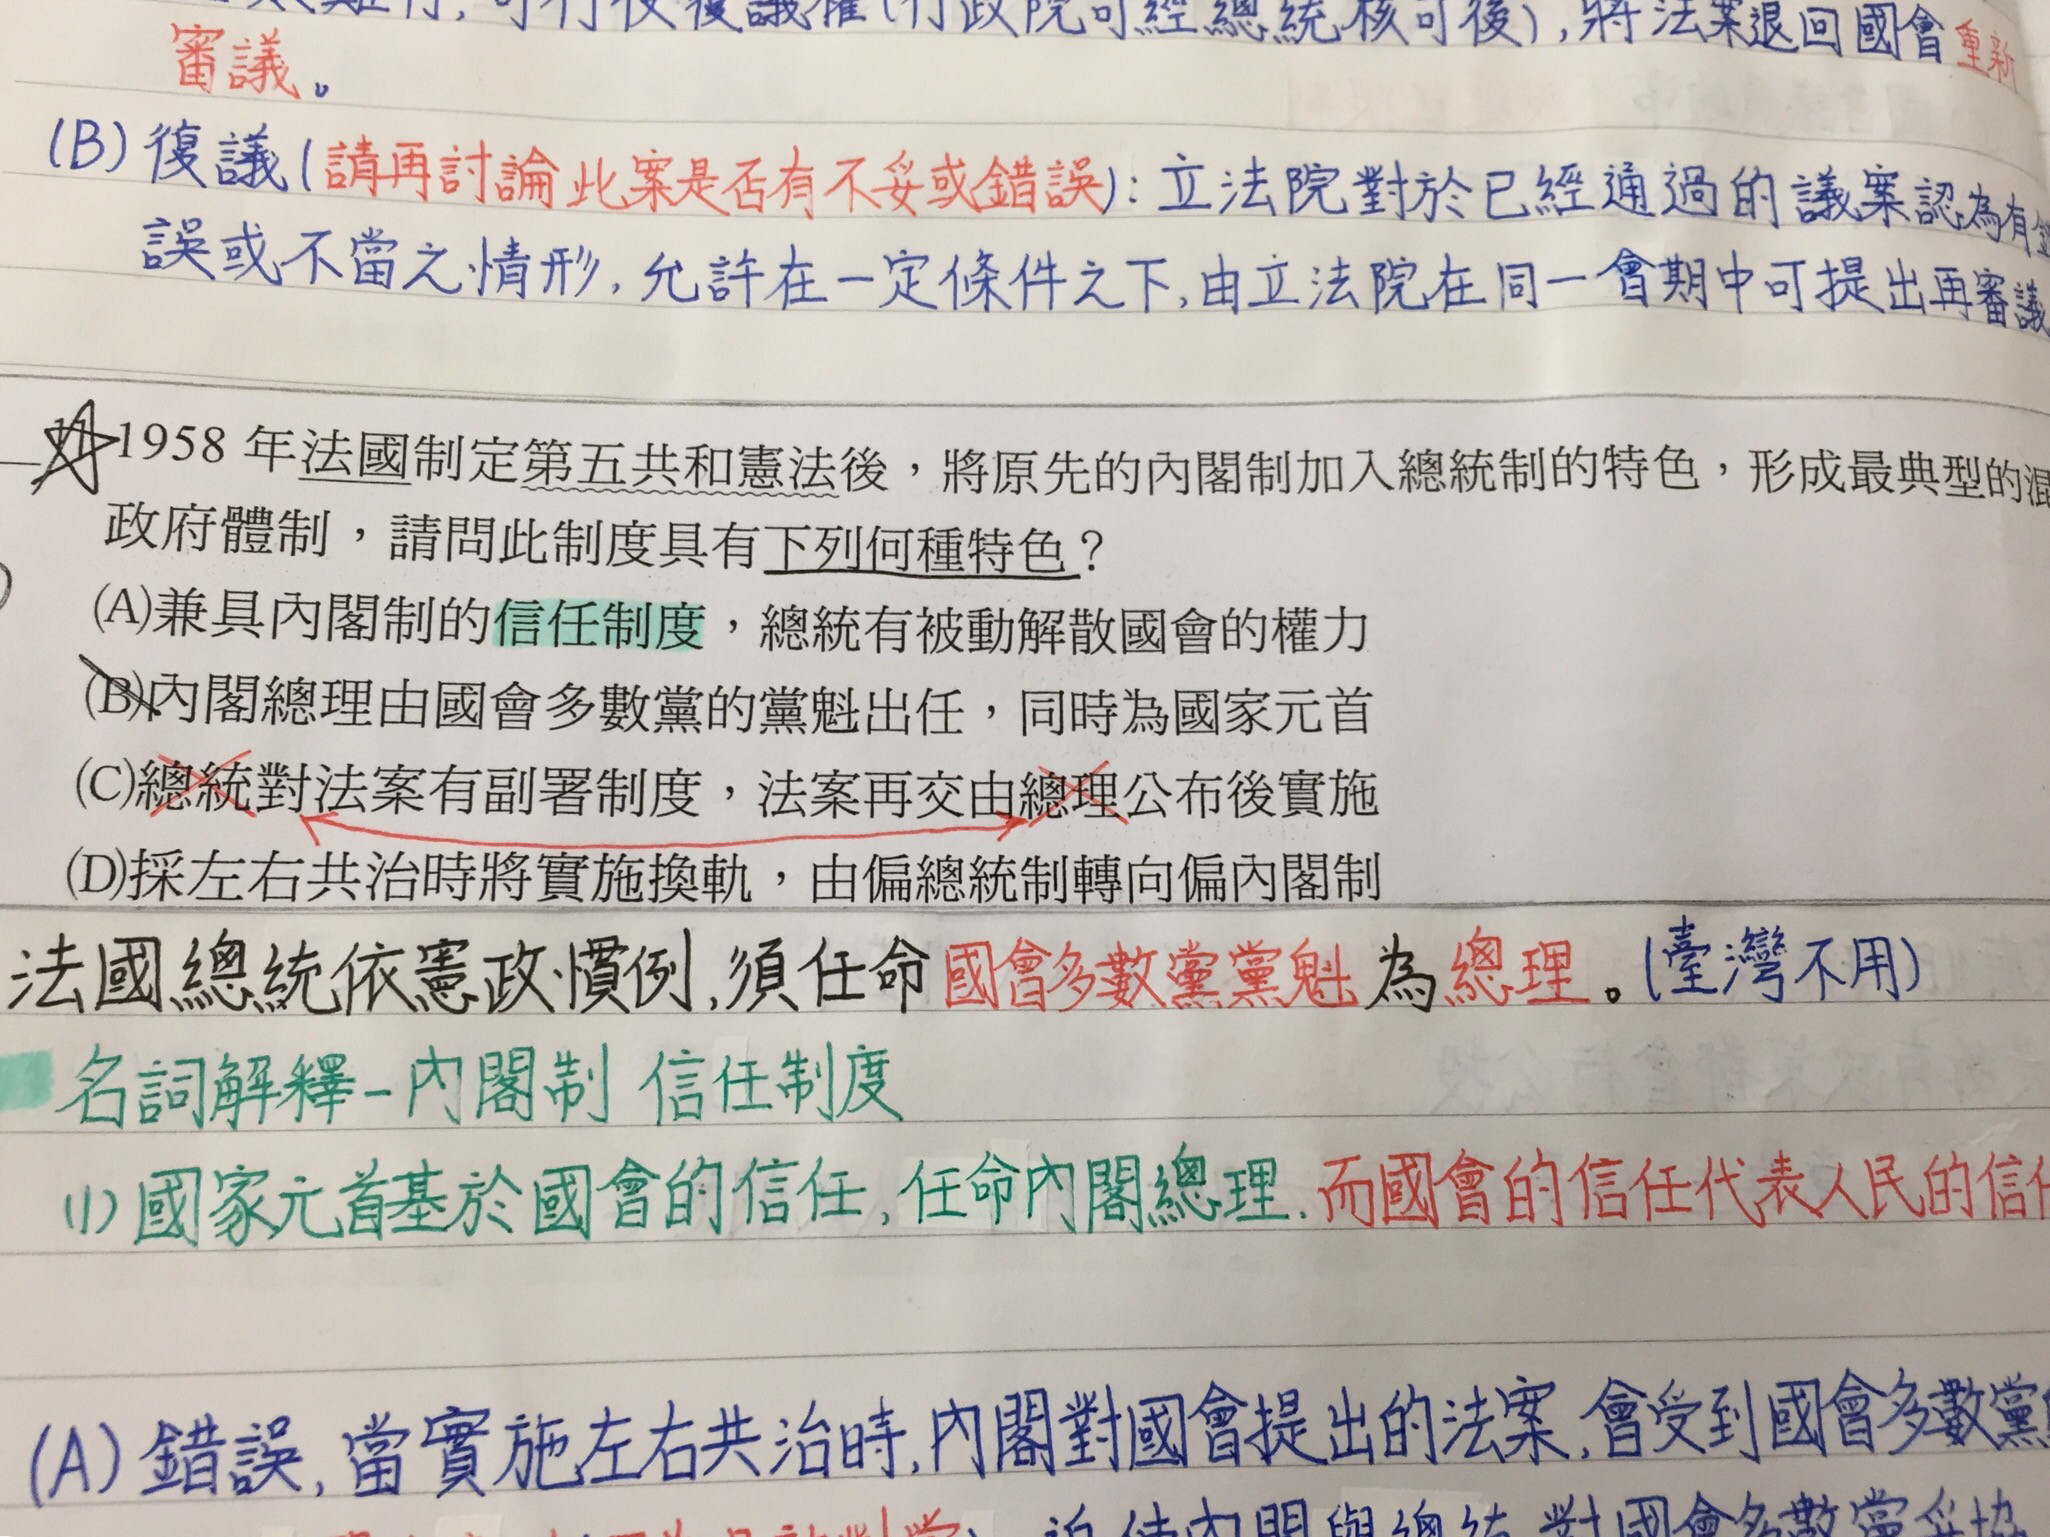 難行,可行使復議權(行政院可經總統核可後),將法案退回國會重新
審議。
(B)復議(請再討論此案是否有不妥或錯誤):立法院對於已經通過的議案認為有錯
誤或不當之情形,允許在一定條件之下,由立法院在同一會期中可提出再審議
1958 年法國制定第五共和憲法後,將原先的內閣制加入總統制的特色,形成最典型的混
政府體制,請問此制度具有下列何種特色?
(A)兼具內閣制的信任制度,總統有被動解散國會的權力
(B)內閣總理由國會多數黨的黨魁出任,同時為國家元首
(C)總統對法案有副署制度,法案再交由總理公布後實施
(D)採左右共治時將實施換軌,由偏總統制轉向偏內閣制
法國總統依憲政慣例,須任命國會多數黨黨魁為總理。(臺灣不用)
名詞解釋-內閣制 信任制度
(1)國家元首基於國會的信任,任命內閣總理.而國會的信任代表人民的信任
(A)錯誤,當實施左右共治時,內閣對國會提出的法案,會受到國會多數黨
迫使內閣與總統對國會多數黨妥協